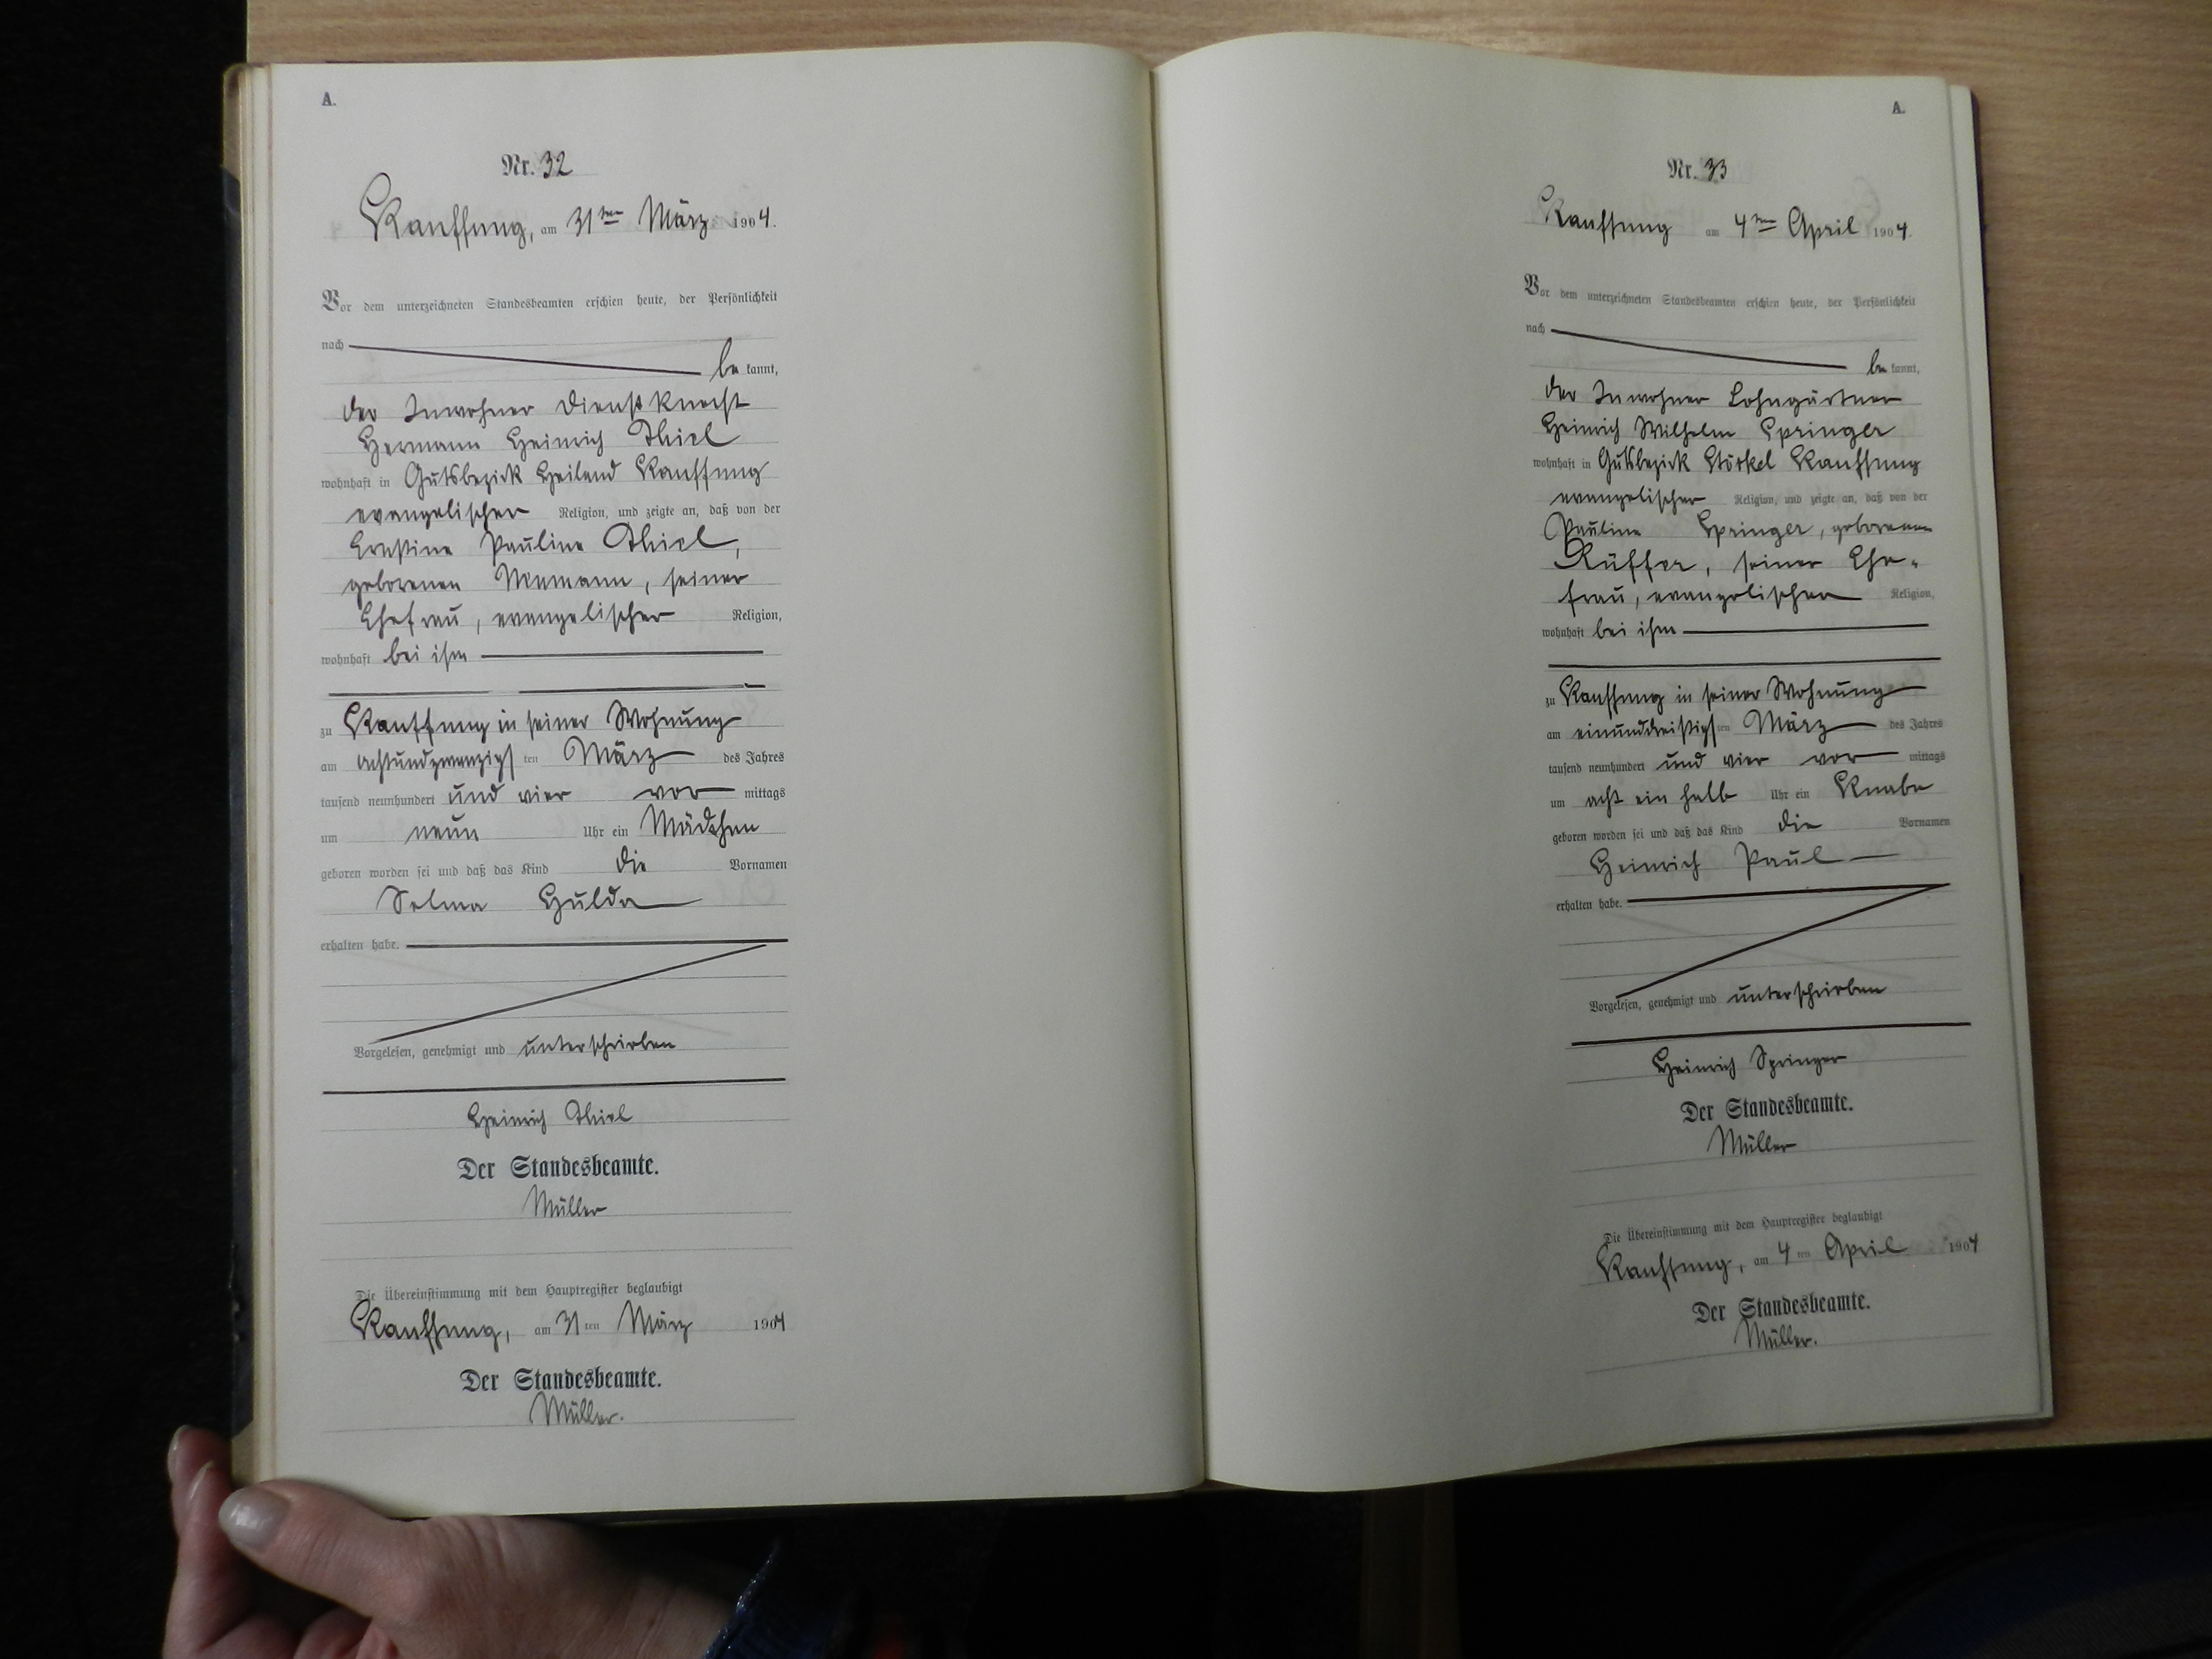 A.
Nr. 32
Kauffung, am 31ten März 1904.
Vor dem unterzeichneten Standesbeamten erschien heute, der Persönlichkeit
nach
be kannt,
der Inwohner Dienstknecht
Hermann Heinrich Thiel
wohnhaft in Gutsbezirk Heiland Kauffung
evangelischer Religion, und zeigte an, daß von der
Ernstine Pauline Thiel,
geborenen, seiner
Ehefrau, evangelischer Religion,
wohnhaft bei ihm
zu Kauffung in seiner Wohnung
am achtundzwanzigsten März des Jahres
tausend neunhundert und vier vor mittags
um neun Uhr ein Mädchen
geboren worden sei und daß das Kind die Vornamen
Selma Hulda
erhalten habe.
Vorgelesen, genehmigt und unterschrieben
Heinrich Thiel
Der Standesbeamte.
Müller
Die Übereinstimmung mit dem Hauptregister beglaubigt
Kauffung, am 31 ten März 1904
Der Standesbeamte.
Müller.
A.
Nr. 33
Kauffung am 4ten April 1904.
Vor dem unterzeichneten Standesbeamten erschien heute, der Persönlichkeit
nach
be kannt,
der Inwohner Lohngärtner
Heinrich Wilhelm Springer
wohnhaft in Gutsbezirk Stöckel Kauffung
evangelischer Religion, und zeigte an, daß von der
Pauline Springer, geborenen
Rüffer, seiner Ehe-
frau, evangelischen Religion,
wohnhaft bei ihm
zu Kauffung in seiner Wohnung
am einunddreißigsten März des Jahres
tausend neunhundert und vier vor mittags
um acht ein halb Uhr ein Knabe
geboren worden sei und daß das Kind die Vornamen
Heinrich Paul
erhalten habe.
Vorgelesen, genehmigt und unterschrieben
Heinrich Springer
Der Standesbeamte.
Müller
Die Übereinstimmung mit dem Hauptregister beglaubigt
Kauffung, am 4 ten April 1904
Der Standesbeamte.
Müller.